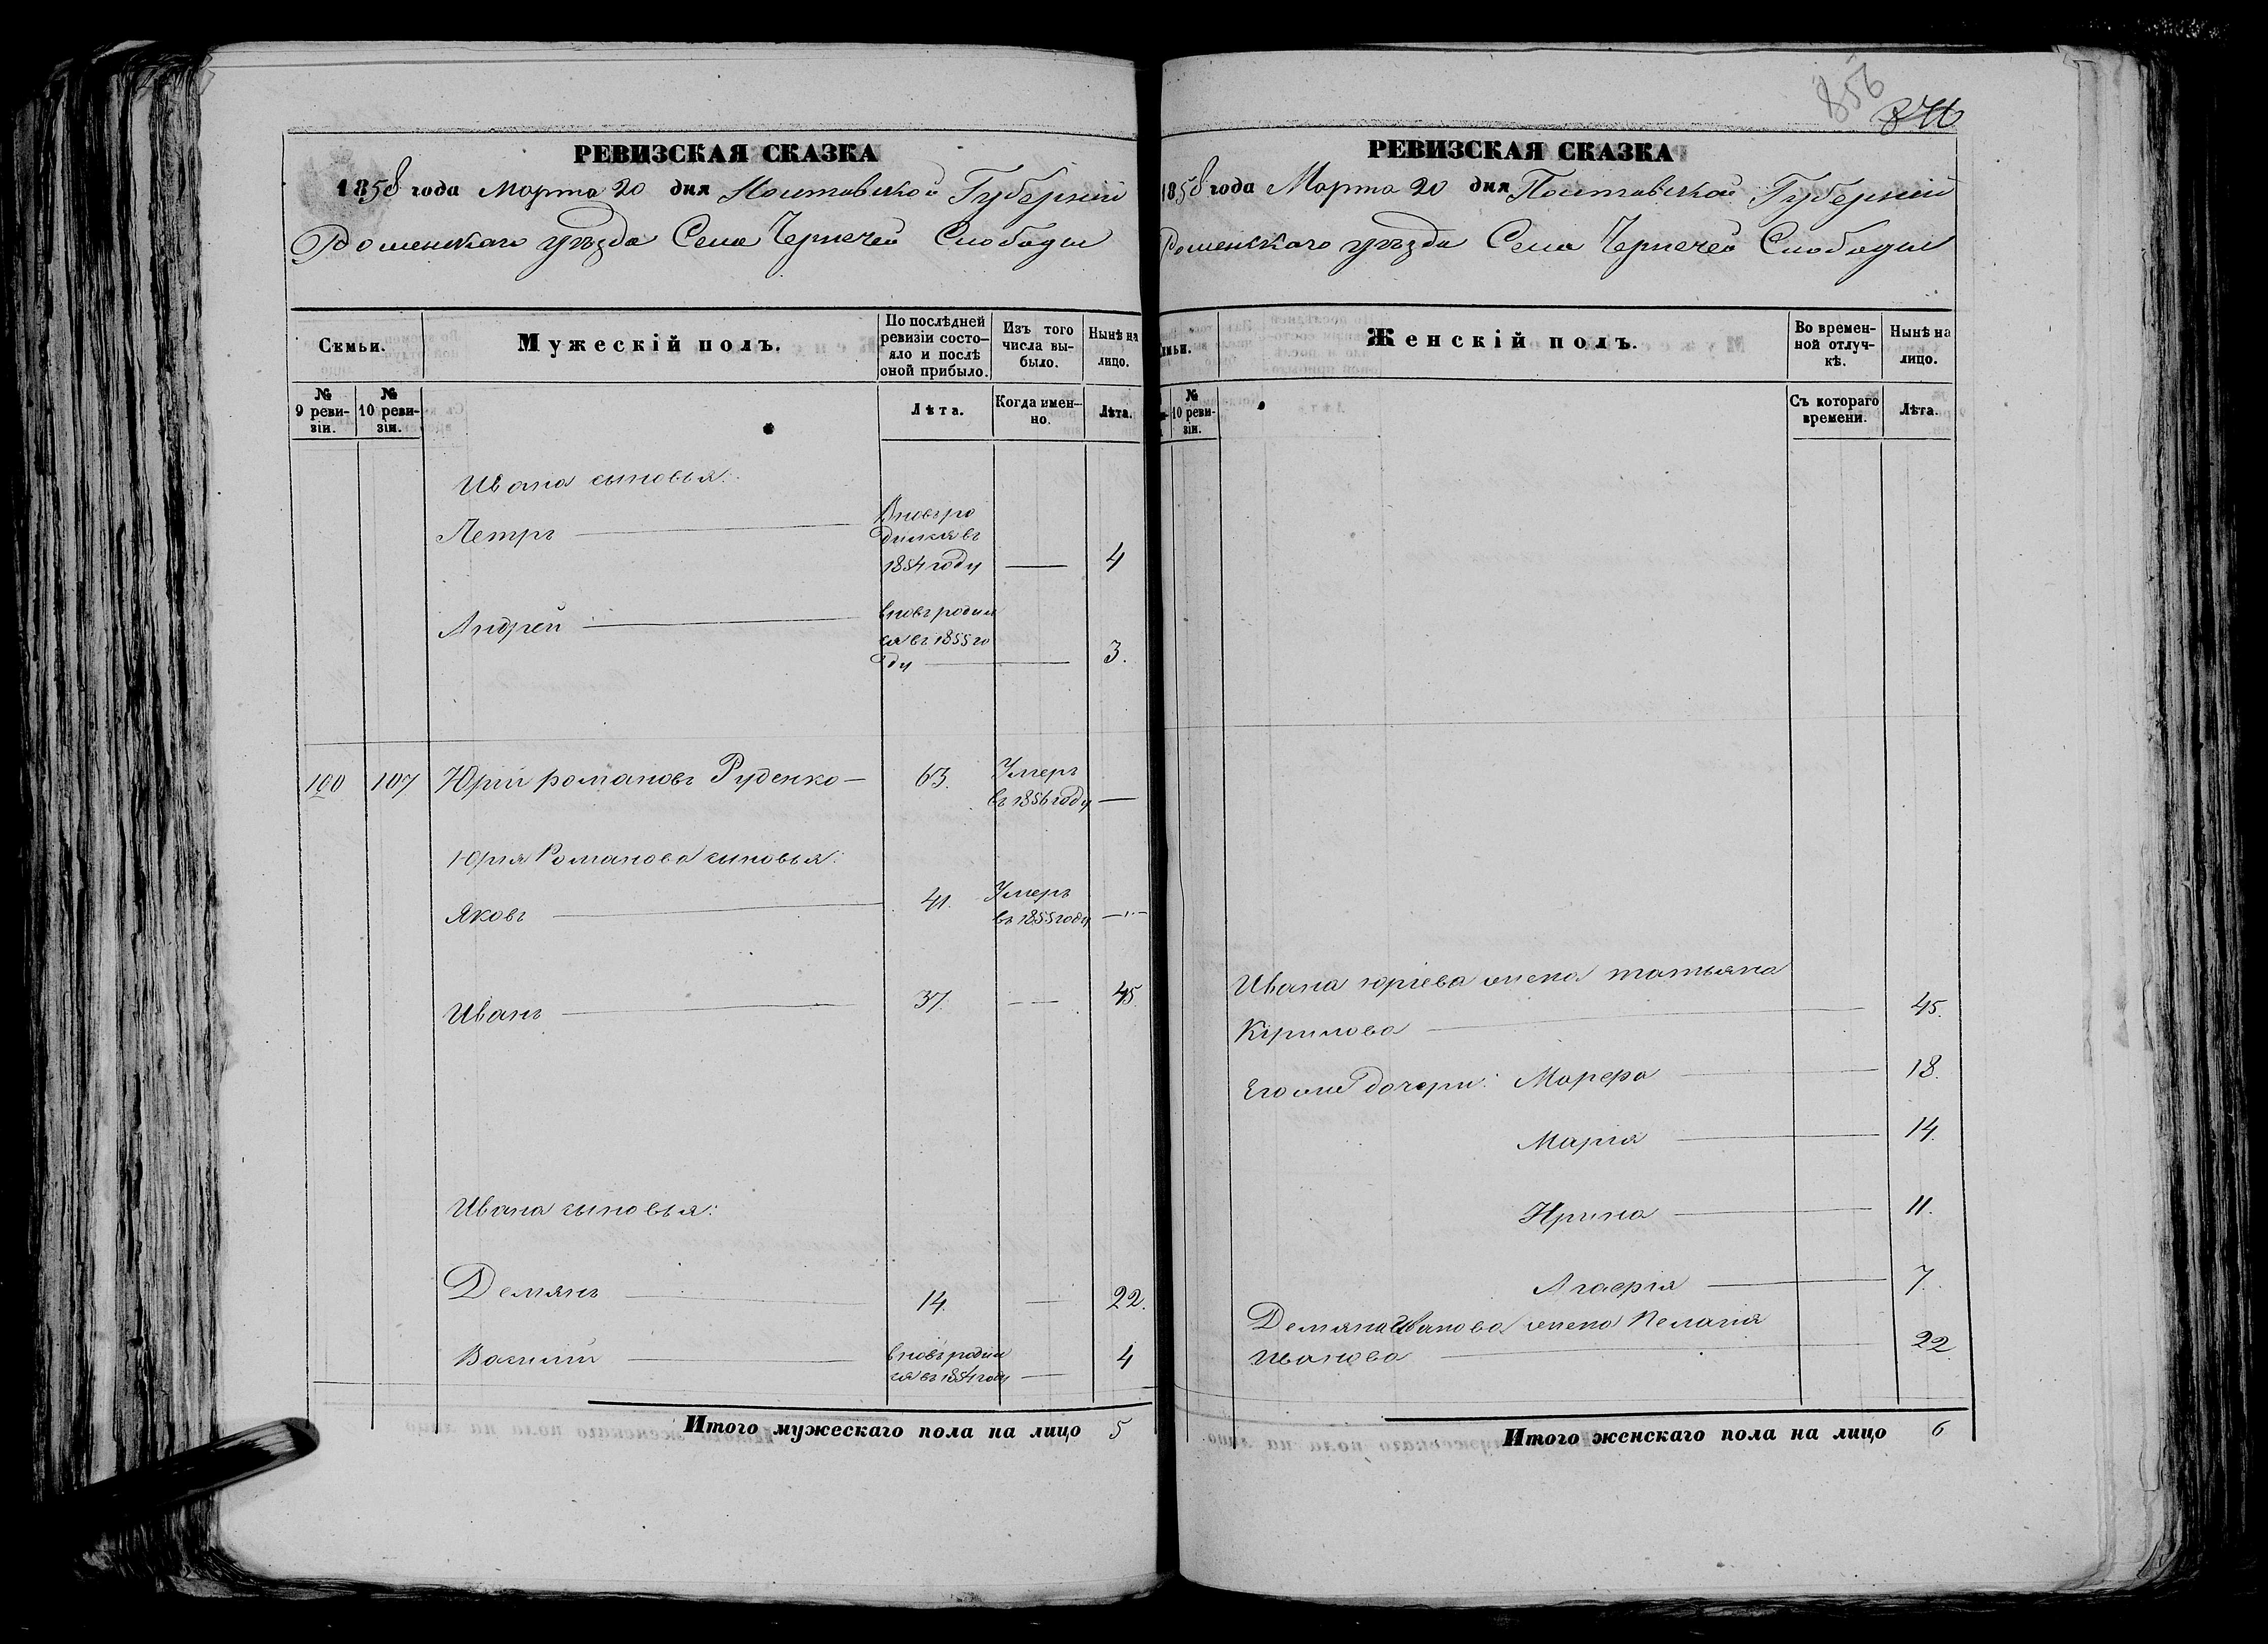 856
РЕВИЗСКАЯ СКАЗКА
1858 года Марта 20 дня Полтавской Губерніи
Роменскаго уѣзда Села Чернечей Слободы
Семьи.
Мужескій полъ.
По послѣдней ревизіи состояло и послѣ оной прибыло.
Изъ того числа выбыло.
Нынѣ на лицо.
№ 9 ревизіи.
№ 10 ревизіи.
Лѣта.
Когда именно.
Лѣта.
Ивана сыновья:
Петръ
Вновь родился въ 1854 году
4
Андрей
вновь родился въ 1855 году
3.
100 107 Юрій романовъ Руденко 63. Умеръ въ 1856 году
Юрія Романова сыновья:
Яковъ 41. Умеръ въ 1855 году
Иванъ 37. 45.
Ивана сыновья:
Демянъ 14. 22.
Василий вновь родился въ 1854 году 4
Итого мужескаго пола на лицо 5
РЕВИЗСКАЯ СКАЗКА
1858 года Марта 20 дня Полтавской Губерніи
Роменскаго уѣзда Села Чернечей Слободы
Женскій полъ.
Во временной отлучкѣ.
Нынѣ на лицо.
№ 10 ревизіи.
Съ котораго времени.
Лѣта.
Ивана юріева жена татьяна
Кірилова 45.
Его же дочери: Марфа 18.
Марія 14.
Ирина 11.
Агафія 7.
Демяна Иванова жена Пелагія
Иванова 22.
Итого женскаго пола на лицо 6